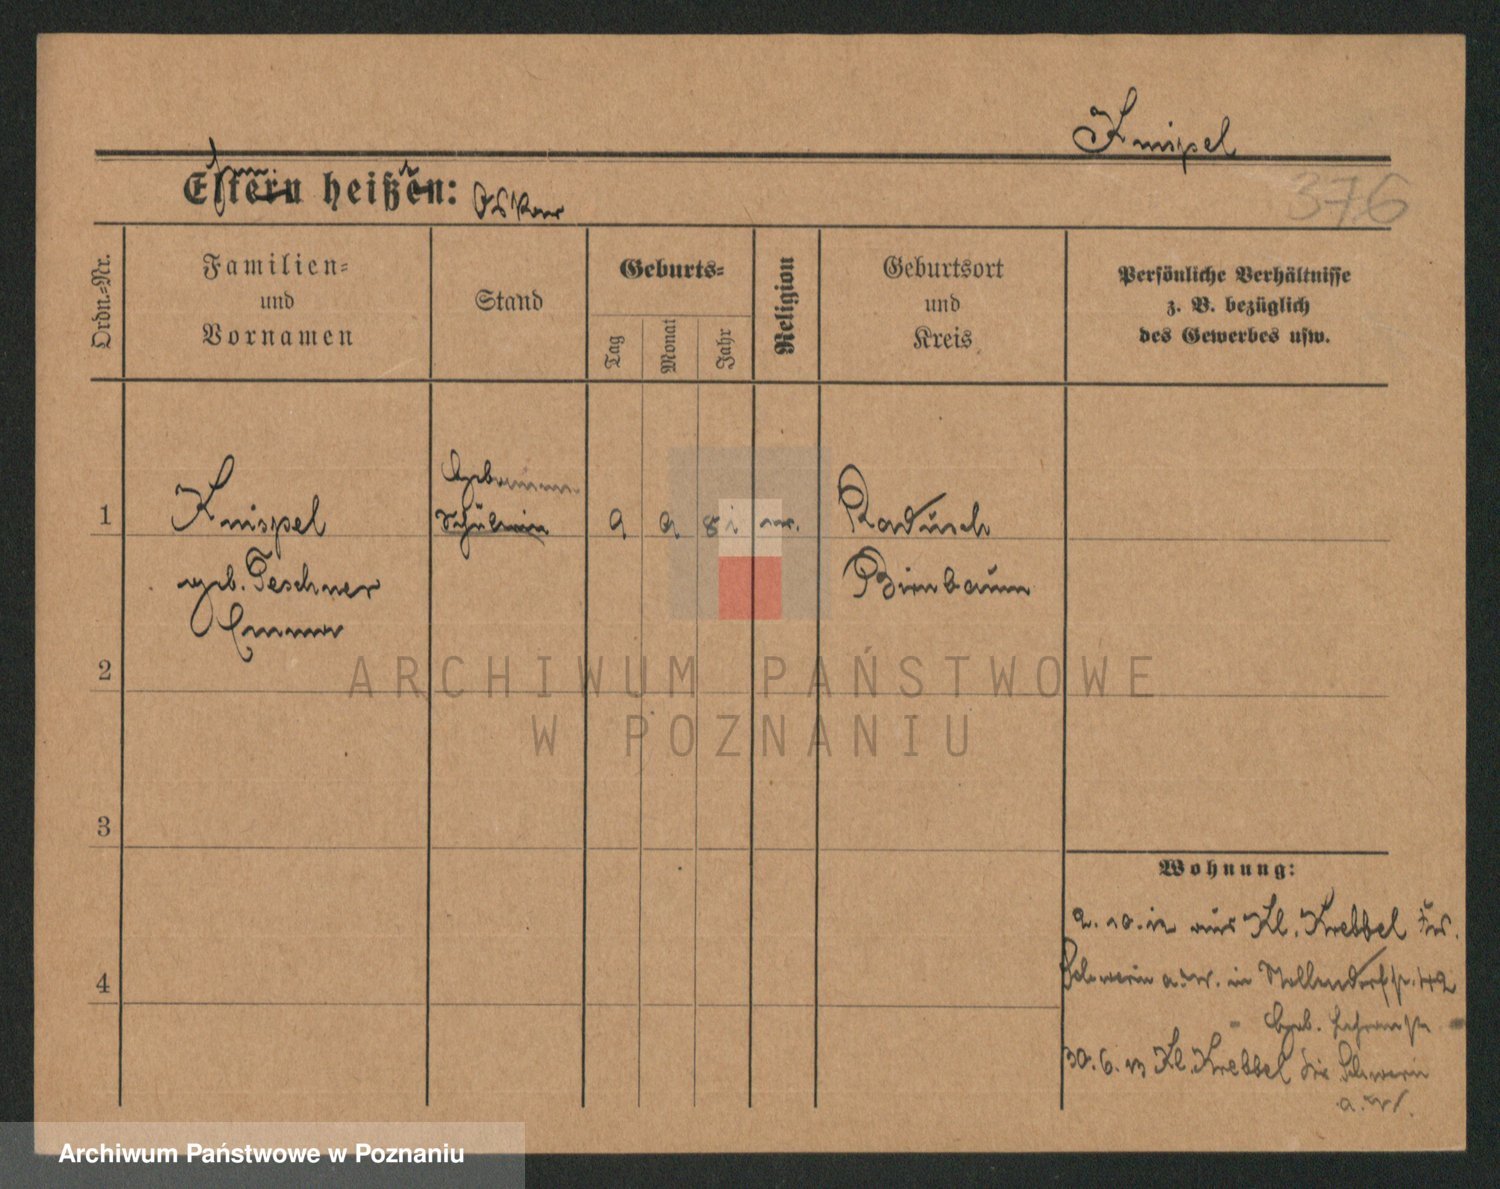 Knispel
Eltern heißen: Oskar
376
Ordn.-Nr.
Familien-
und
Vornamen
Stand
Geburts-
Tag
Monat
Jahr
Religion
Geburtsort
und
Kreis
Persönliche Verhältnisse
z. B. bezüglich
des Gewerbes usw.
Hebammen
1 Knispel Schülerin 9 9 81 Radusch
geb. Teschner Birnbaum
Emma
2
3
4
Wohnung:
2. 10. 12 aus Kl. Krebbel Krs.
Schwerin a. W. in
30. 6. 13 Kl. Krebbel Krs. Schwerin
a. W.
ARCHIWUM PAŃSTWOWE
W POZNANIU
Archiwum Państwowe w Poznaniu